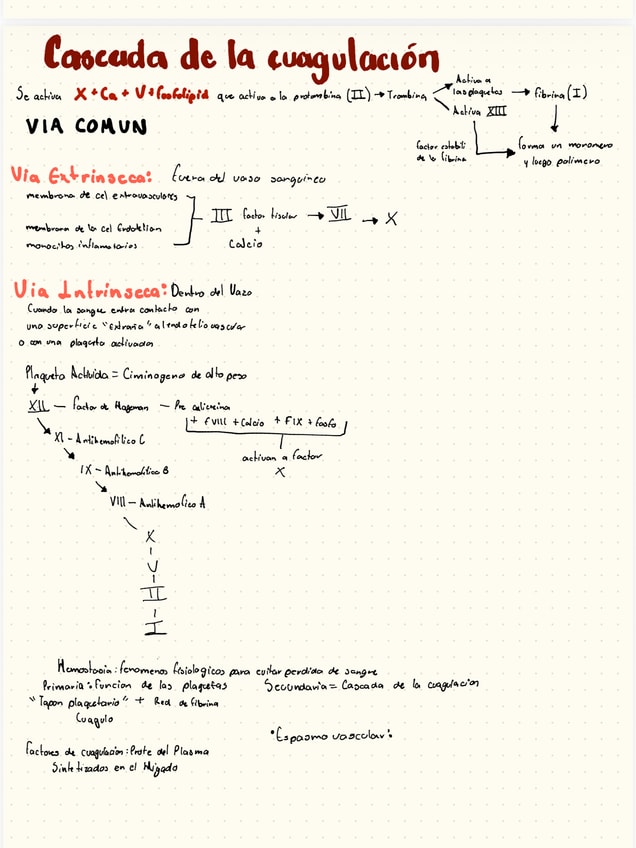 Cascada de la cuagulación
Se activa X + Ca + V + fosfolipid que activa a la protrombina (II) → Trombina
Activa a
las plaquetas → fibrina (I)
Activa XIII
VIA COMUN
factor estabili
de la fibrina
forma un monomero
y luego polimero
Via Extrinseca: fuera del vaso sanguineo
membrana de cel extravasculares
III factor tisular → VII → X
+
Calcio
membrana de la cel Endotelian
monocitos inflamatorios
Via Intrinseca: Dentro del Vazo
Cuando la sangre entra contacto con
una superficie "Extraña" al endotelio vascular
o con una plaqueta activadan
Plaqueta Activida = Ciminogeno de alto peso
XII — factor de Hageman — Pre calicreina
+ FVIII + Calcio + FIX + fosfo
XI - Antihemofilico C
activan a factor
X
IX - Antihemofilico B
VIII — Antihemofilico A
X
V
II
I
Hemostacia : fenomenos fisiologicos para evitar perdida de sangre
Primaria : Funcion de las plaquetas Secundaria = Cascada de la cuagulacion
"Tapon plaquetario" + Red de fibrina
Cuagulo
"Espasmo vascular":
factores de cuagulacion : Prote del Plasma
Sintetizados en el Higado